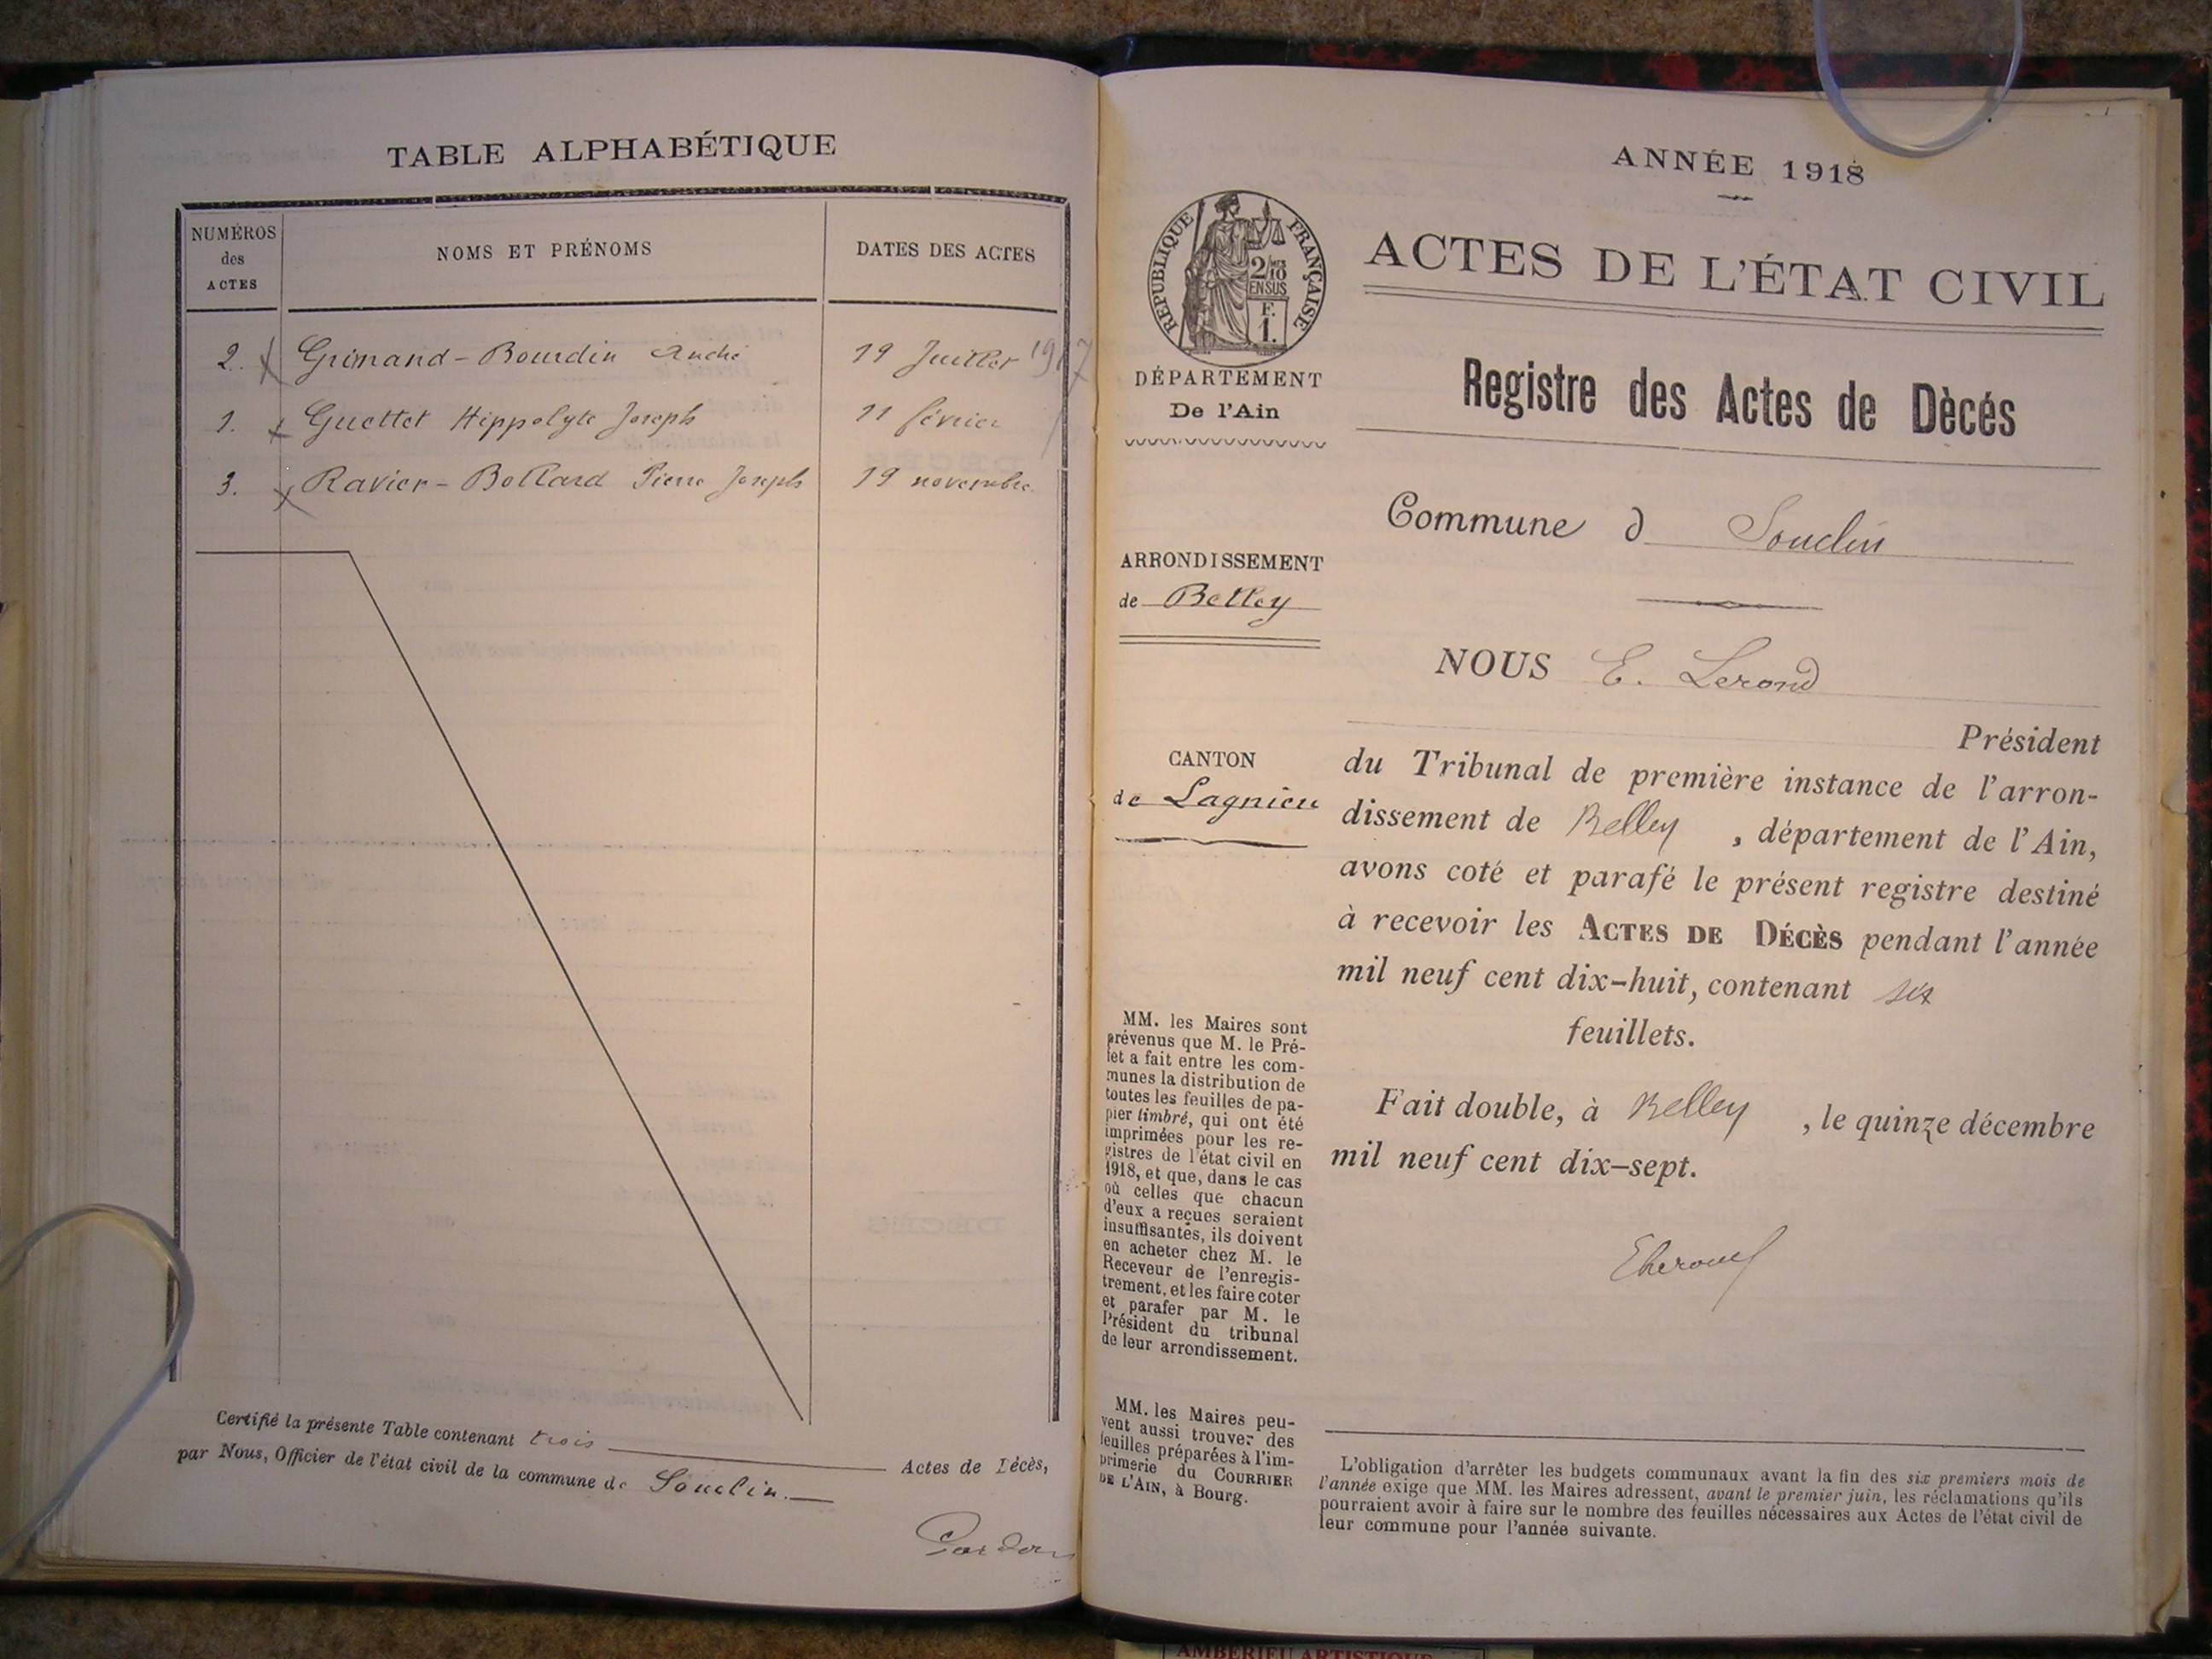 TABLE ALPHABÉTIQUE
NUMÉROS
des
ACTES
NOMS ET PRÉNOMS
DATES DES ACTES
2. Grimand-Bourdin André 19 Juillet 1917
1. Guettet Hippolyte Joseph 11 février
3. Ravier-Bollard Pierre Joseph 19 novembre
Certifié la présente Table contenant trois Actes de Décès,
par Nous, Officier de l'état civil de la commune de Souclin.
ANNÉE 1918
RÉPUBLIQUE FRANÇAISE
2/10
EN SUS
F.
1.
ACTES DE L'ÉTAT CIVIL
DÉPARTEMENT
De l'Ain
Registre des Actes de Dècés
Commune d Souclin
ARRONDISSEMENT
de Belley
NOUS E. Lerond
Président
CANTON
de Lagnieu
du Tribunal de première instance de l'arron-
dissement de Belley, département de l'Ain,
avons coté et parafé le présent registre destiné
à recevoir les ACTES DE DÉCÈS pendant l'année
mil neuf cent dix-huit, contenant six
feuillets.
Fait double, à Belley, le quinze décembre
mil neuf cent dix-sept.
MM. les Maires sont
prévenus que M. le Pré-
fet a fait entre les com-
munes la distribution de
toutes les feuilles de pa-
pier timbré, qui ont été
imprimées pour les re-
gistres de l'état civil en
1918, et que, dans le cas
où celles que chacun
d'eux a reçues seraient
insuffisantes, ils doivent
en acheter chez M. le
Receveur de l'enregis-
trement, et les faire coter
et parafer par M. le
Président du tribunal
de leur arrondissement.
MM. les Maires peu-
vent aussi trouver des
feuilles préparées à l'im-
primerie du COURRIER
DE L'AIN, à Bourg.
L'obligation d'arrêter les budgets communaux avant la fin des six premiers mois de
l'année exige que MM. les Maires adressent, avant le premier juin, les réclamations qu'ils
pourraient avoir à faire sur le nombre des feuilles nécessaires aux Actes de l'état civil de
leur commune pour l'année suivante.
AMBERIEU ARTISTIQUE